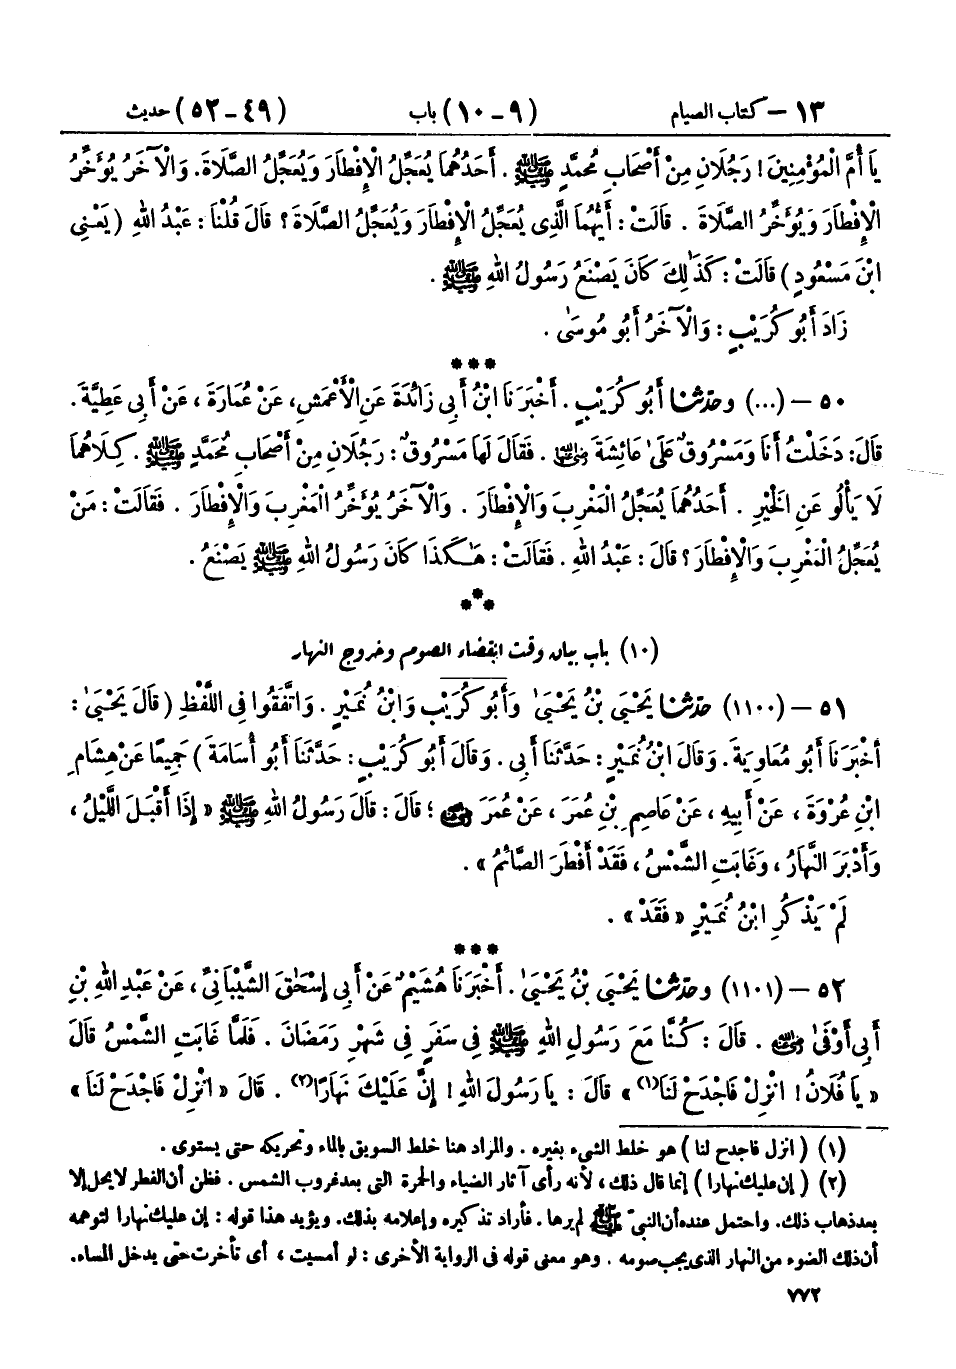 ١٣ – كتاب الصيام (٩ – ١٠) باب (٤٩–٥٢) حديث
يَا أُمَّ الْمُؤْمِنِينَ! رَجُلَانِ مِنْ أَصْحَابِ مُحَمَّدٍ ﷺ . أَحَدُهُمَا يُعَجِّلُ الْإِفْطَارَ وَيُعَجِّلُ الصَّلَاةَ. وَالْآخَرُ يُؤَخِّرُ
الْإِفْطَارَ وَيُؤَخِّرُ الصَّلَاةَ . قَالَتْ : أَيُّهُمَا الَّذِي يُعَجِّلُ الْإِفْطَارَ وَيُعَجِّلُ الصَّلَاةَ ؟ قَالَ قُلْنَا : عَبْدُ اللهِ ( يَعْنِي
ابْنَ مَسْعُودٍ ) قَالَتْ : كَذَٰلِكَ كَانَ يَصْنَعُ رَسُولُ اللهِ ﷺ .
زَادَ أَبُو كُرَيْبٍ : وَالْآخَرُ أَبُو مُوسَىٰ .
***
٥٠ – (...) وحَدَّثَنَا أَبُو كُرَيْبٍ . أَخْبَرَنَا ابْنُ أَبِي زَائِدَةَ عَنِ الْأَعْمَشِ، عَنْ عُمَارَةَ ، عَنْ أَبِي عَطِيَّةَ .
قَالَ: دَخَلْتُ أَنَا وَمَسْرُوقٌ عَلَىٰ عَائِشَةَ رضي الله عنها . فَقَالَ لَهَا مَسْرُوقٌ : رَجُلَانِ مِنْ أَصْحَابِ مُحَمَّدٍ ﷺ . كِلَاهُمَا
لَا يَأْلُو عَنِ الْخَيْرِ . أَحَدُهُمَا يُعَجِّلُ الْمَغْرِبَ وَالْإِفْطَارَ . وَالْآخَرُ يُؤَخِّرُ الْمَغْرِبَ وَالْإِفْطَارَ . فَقَالَتْ : مَنْ
يُعَجِّلُ الْمَغْرِبَ وَالْإِفْطَارَ ؟ قَالَ : عَبْدُ اللهِ . فَقَالَتْ : هَٰكَذَا كَانَ رَسُولُ اللهِ ﷺ يَصْنَعُ .
***
(١٠) باب بيان وقت انقضاء الصوم وخروج النهار
٥١ – (١١٠٠) حَدَّثَنَا يَحْيَى بْنُ يَحْيَىٰ وَأَبُو كُرَيْبٍ وَابْنُ نُمَيْرٍ . وَاتَّفَقُوا فِي اللَّفْظِ ( قَالَ يَحْيَىٰ :
أَخْبَرَنَا أَبُو مُعَاوِيَةَ . وَقَالَ ابْنُ نُمَيْرٍ : حَدَّثَنَا أَبِي . وَقَالَ أَبُو كُرَيْبٍ : حَدَّثَنَا أَبُو أُسَامَةَ ) جَمِيعًا عَنْ هِشَامِ
ابْنِ عُرْوَةَ ، عَنْ أَبِيهِ ، عَنْ عَاصِمِ بْنِ عُمَرَ ، عَنْ عُمَرَ رضي الله عنه ؛ قَالَ : قَالَ رَسُولُ اللهِ ﷺ « إِذَا أَقْبَلَ اللَّيْلُ ،
وَأَدْبَرَ النَّهَارُ ، وَغَابَتِ الشَّمْسُ ، فَقَدْ أَفْطَرَ الصَّائِمُ » .
لَمْ يَذْكُرِ ابْنُ نُمَيْرٍ « فَقَدْ » .
***
٥٢ – (١١٠١) وحَدَّثَنَا يَحْيَى بْنُ يَحْيَىٰ . أَخْبَرَنَا هُشَيْمٌ عَنْ أَبِي إِسْحَاقَ الشَّيْبَانِيِّ ، عَنْ عَبْدِ اللهِ بْنِ
أَبِي أَوْفَىٰ رضي الله عنه . قَالَ : كُنَّا مَعَ رَسُولِ اللهِ ﷺ فِي سَفَرٍ فِي شَهْرِ رَمَضَانَ . فَلَمَّا غَابَتِ الشَّمْسُ قَالَ
« يَا فُلَانُ ! انْزِلْ فَاجْدَحْ لَنَا(١) » قَالَ : يَا رَسُولَ اللهِ ! إِنَّ عَلَيْكَ نَهَارًا(٢) . قَالَ « انْزِلْ فَاجْدَحْ لَنَا »
(١) ( انزل فاجدح لنا ) هو خلط الشيء بغيره . والمراد هنا خلط السويق بالماء وتحريكه حتى يستوى .
(٢) ( إن عليك نهارا ) إنما قال ذلك ، لأنه رأى آثار الضياء والحمرة التى بعد غروب الشمس . فظن أن الفطر لا يحل إلا
بعد ذهاب ذلك. واحتمل عنده أن النبيّ ﷺ لم يرها . فأراد تذكيره وإعلامه بذلك. ويؤيد هذا قوله : إن عليك نهارا لتوهمه
أن ذلك الضوء من النهار الذى يجب صومه . وهو معنى قوله فى الرواية الأخرى : لو أمسيت ، أى تأخرت حتى يدخل المساء.
٧٧٢